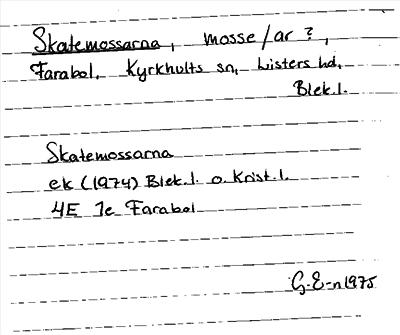 Skatemossarna, mosse/ar?,
Farabol, Kyrkhults sn, Listers hd,
Blek. l.
Skatemossarna
ek (1974) Blek. l. o. Krist. l.
4E 7e Farabol
G. E-n 1975